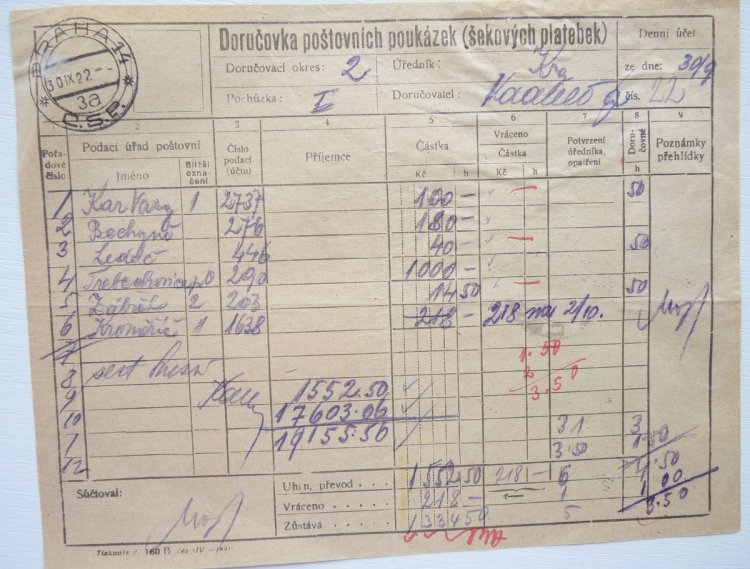 PRAHA 14
30.IX.22
3a
Č.S.P.
Doručovka poštovních poukázek (šekových platebek)
Denní účet
Doručovací okres: 2 Úředník: ze dne: 30/9
Pochůzka: I Doručovatel: čís. 22
1 2 3 4 5 6 7 8 9
Pořadové číslo Podací úřad poštovní Číslo podací (účtu) Příjemce Částka Vráceno Potvrzení úředníka, opatření Doručovné Poznámky přehlídky
Jméno Bližší označení Kč h Částka Kč h h
1 Kar Vary 1 2737 100 — — 50
2 Bechyně 276 180 —
3 Ledeč 446 40 — — 50
4 290 1000 —
5 Zábřeh 2 203 14 50 — 50
6 Kroměříž 1 1638 218 — 218 2/10.
7 1.50
8 2
9 1552.50 3.50
10 17603.06
1 19155.50 31 3
12 3.50 1.50
Súčtoval: Úhrn, převod . . . . 1552.50 218 — 6 1.50
Vráceno . . . . . 218 — 1 1 00
Zůstává . . . . . 1334 50 5 3.50
Tiskopis č. 160 B